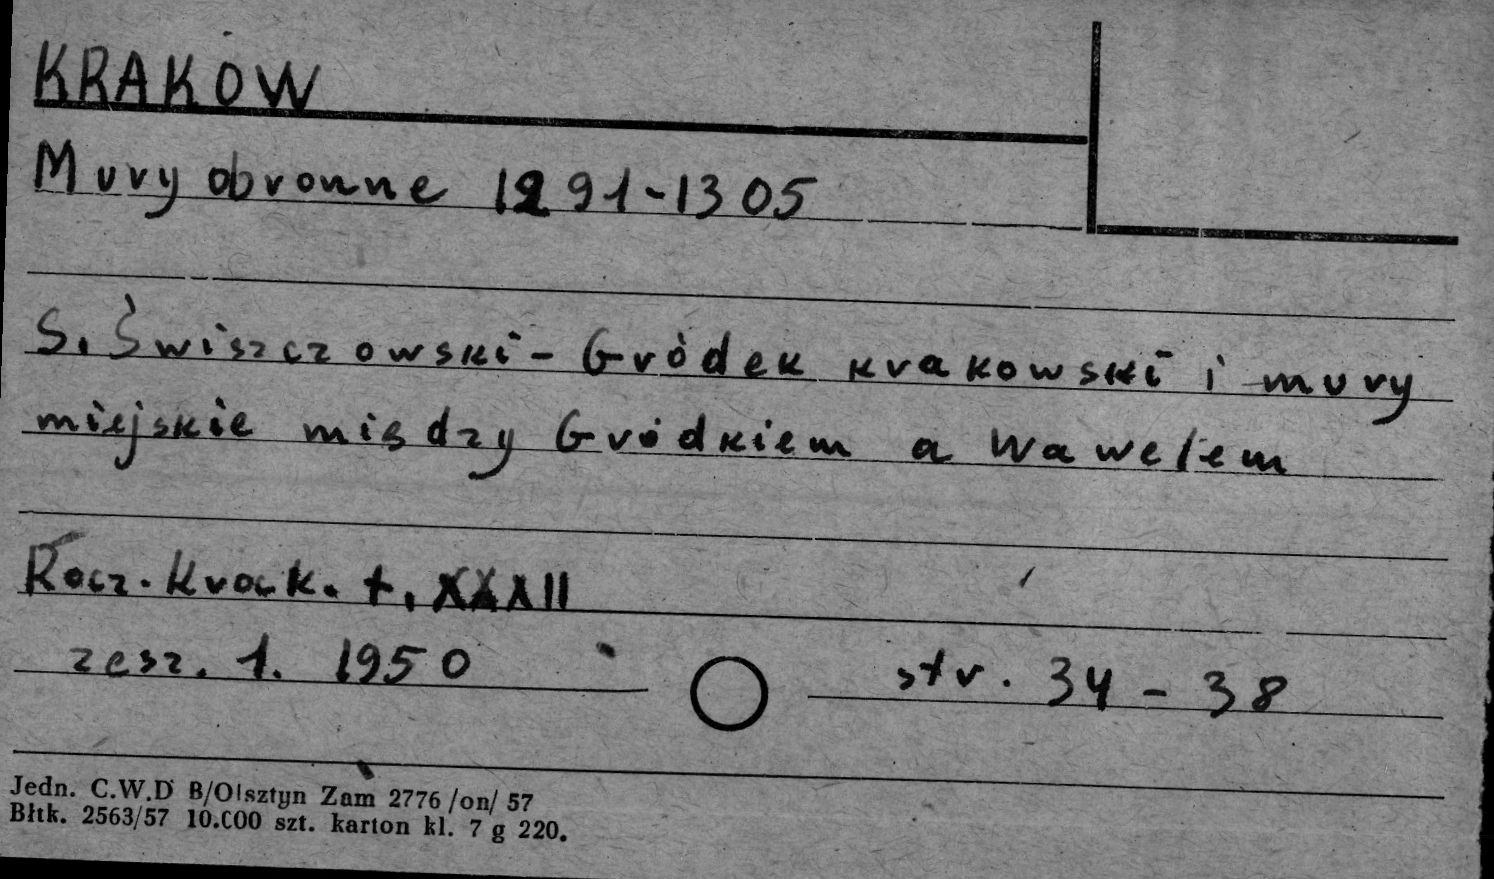 KRAKÓW
Mury obronne 1291-1305
S. Świszczowski - Gródek krakowski i mury
miejskie między Gródkiem a Wawelem
Rocz. Krak. t. XXXII
zesz. 1. 1950 str. 34 - 38
Jedn. C.W.D B/Olsztyn Zam 2776 /on/ 57
Błtk. 2563/57 10.000 szt. karton kl. 7 g 220.